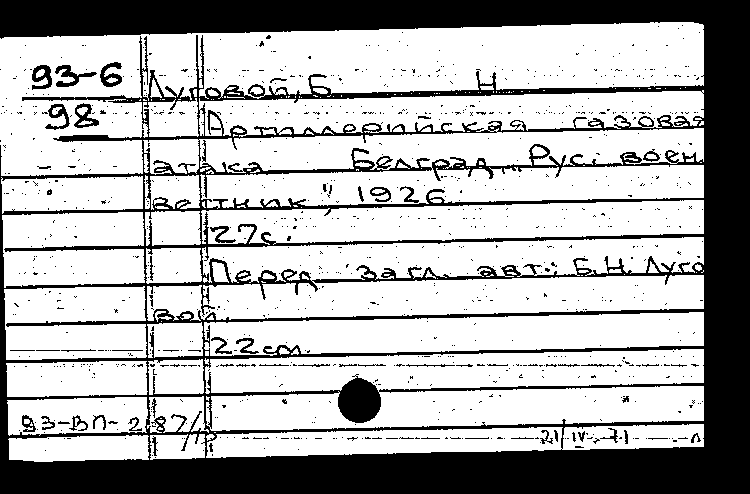 93-6 Луговой, Б. Н
98 Артиллерийская газовая
атака Белград, „Рус. воен.
вестник", 1926
27с.
Перед загл. авт.: Б.Н. Луго
вой.
22см.
93-ВП- 2187/
21/IV-71